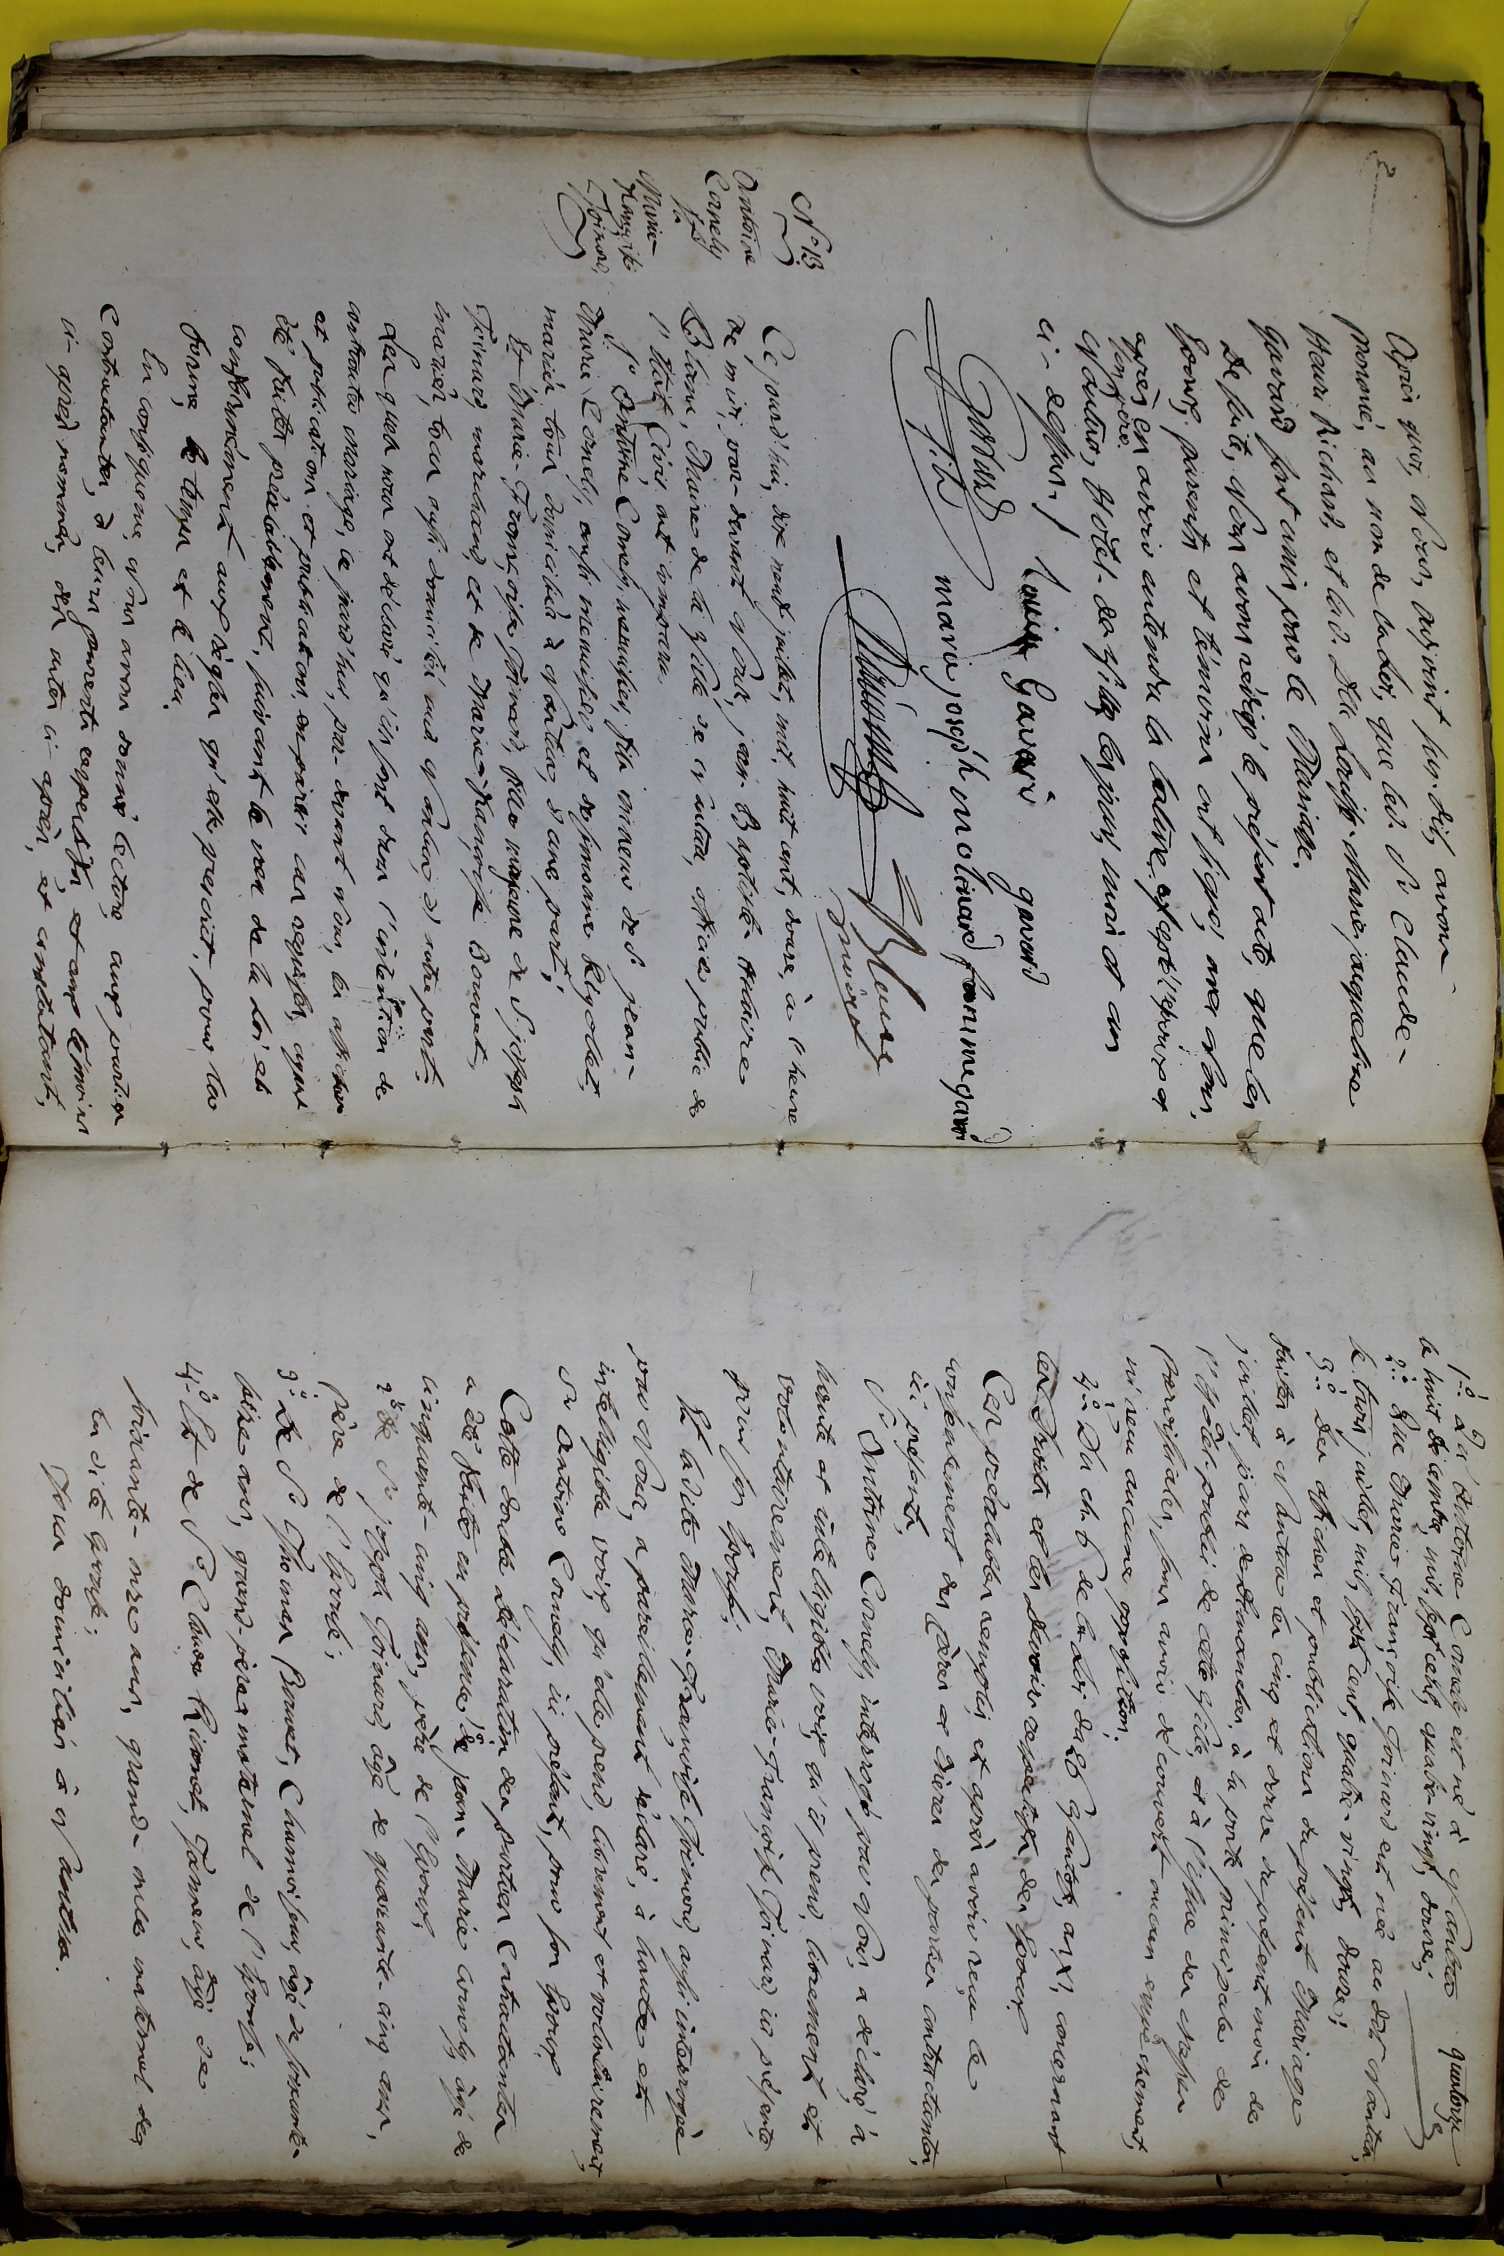 Après quoi, Nous, adjoint sus-dit, avons
prononcé, au nom de la Loi, que led. Sr Claude-
Henri Richard, et lad. Dlle Louise-Marie-jacqueline
Gavard sont unis par le Mariage.
De suite, Nous avons rédigé le présent acte, que les
Epoux, parents et témoins ont signé, avec Nous,
après en avoir entendu la lecture, excepté l'épouse et
son père.
Nantua, Hôtel-de-Ville, les jour, mois et an
ci-dessus /
Louise Gavard gavard
Gavard
marie joseph molinard femme gavard
N.° 13
Antoine
Conely
&
Marie
Françoise
Foinard,
Cejourd'hui, dix neuf juillet, mil huit cent, douze, à l'heure
de midi, par-devant Nous, jean-Baptiste-Hilaire
Maire de la Ville de Nantua, officier public de
l'état Civil ont comparu
Sr Antoine Conely, menuisier, fils mineur de Sr jean-
Marie Conely, aussi menuisier et de Simone Reydet,
mariés, tous domiciliés à Nantua, d'une part;
Et Marie-Françoise Foinard, fille majeure de Sr joseph
Foinard, marchand, et de Marie-Françoise Bonvet,
mariés, tous aussi domiciliés aud Nantua, d'autre part;
Lesquels nous ont déclaré qu'ils sont dans l'intention de
contracter mariage, ce jourd'hui, par-devant Nous, les affiches
et publications en pareil cas requises, ayant
été faites préalablement, suivant le vœu de la Loi et
conformément aux règles qu'elle prescrit, pour la
forme, le temps et le lieu.
En conséquence, Nous avons donné lecture aux parties
Contractantes, à leurs parents respectifs, et aux témoins
ci-après nommés, des actes ci-après, et constatant,
quatorze
1.° Qu'Antoine Conely est né à Nantua
le huit décembre, mil sept cent, quatre-vingt, douze;
2.° Que Marie Françoise Foinard est née au dit Nantua,
le trois juillet, mil, sept cent, quatre-vingt, douze;
3.° Des affiches et publications du présent Mariage
faites à Nantua les cinq et douze du présent mois de
juillet, jours de dimanches, à la porte principale de
l'hôtel public de cette Ville, et à l'issue des messes
paroissiales, sans avoir découvert aucun empêchement,
ni reçu aucune opposition.
4.° Du ch. 6 de la Loi du 26 Ventôse, an XI, concernant
les Droits et les devoirs respectifs des Epoux
Ces préalables remplis et après avoir reçu le
consentement des Pères et Mères des parties contractantes,
ici présents,
Sr Antoine Conely, interrogé par Nous, a déclaré à
haute et intelligible voix, qu'il prend, librement et
volontairement, Marie-Françoise Foinard ici présente,
pour son Epouse;
Et ladite Marie-Françoise Foinard, aussi interrogée
par Nous, a pareillement déclaré, à haute et
intelligible voix, qu'elle prend, librement et volontairement,
Sr Antoine Conely, ici présent, pour son Epoux
Cette double déclaration des parties Contractantes
a été faite en présence 1.° de jean-Marie Conely, âgé de
cinquante-cinq ans, père de l'Epoux,
2.° de Sr joseph Foinard, âgé de quarante-cinq ans,
père de l'Epouse;
3.° de Sr Thomas Bonvet, Chamoiseur, âgé de soixante-
seize ans, grand-père maternel de l'Epouse;
4.° Et de Sr Claude Tanneur, âgé de
soixante-onze ans, grand-oncle maternel de
la dite Epouse;
Tous domiciliés à Nantua.